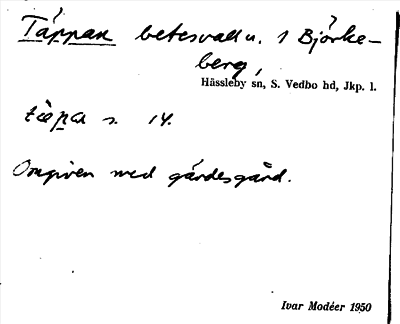 Täppan betesvall u. 1 Björke-
berg,
Hässleby sn, S. Vedbo hd, Jkp. l.
s. 14.
Omgiven med gärdesgård.
Ivar Modéer 1950